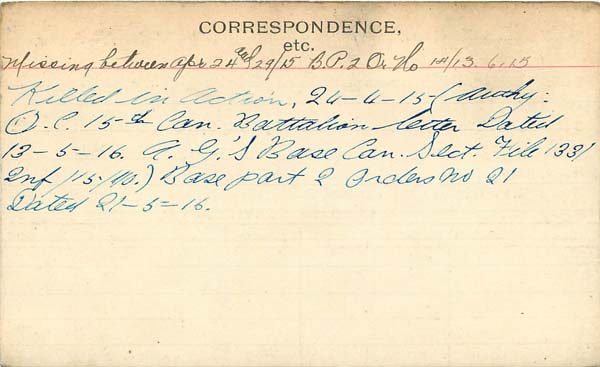 CORRESPONDENCE,
etc.
Missing between Apr 24 and 29/15 B.P.2 Or. No 1st/13.6.15
Killed in Action, 24-4-15 (Authy:
O.C. 15th Can. Battalion letter Dated
13-5-16. A.G.'s Base Can. Sect. File 133/
Inf/15/40.) Base part 2 Orders No 21
Dated 21-5-16.